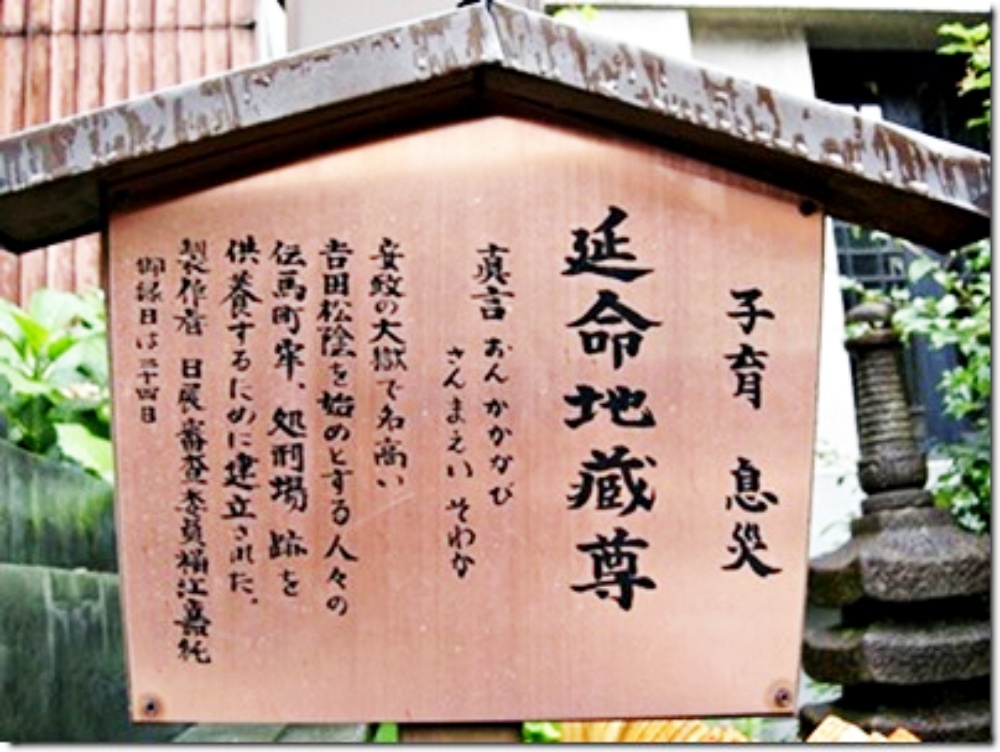 子育 息災
延命地蔵尊
真言 おんかかかび
さんまえい そわか
安政の大獄で名高い
吉田松陰を始めとする人々の
伝馬町牢、処刑場 跡を
供養するために建立された。
製作者 日展審査委員 堀江嘉純
御縁日は二十四日